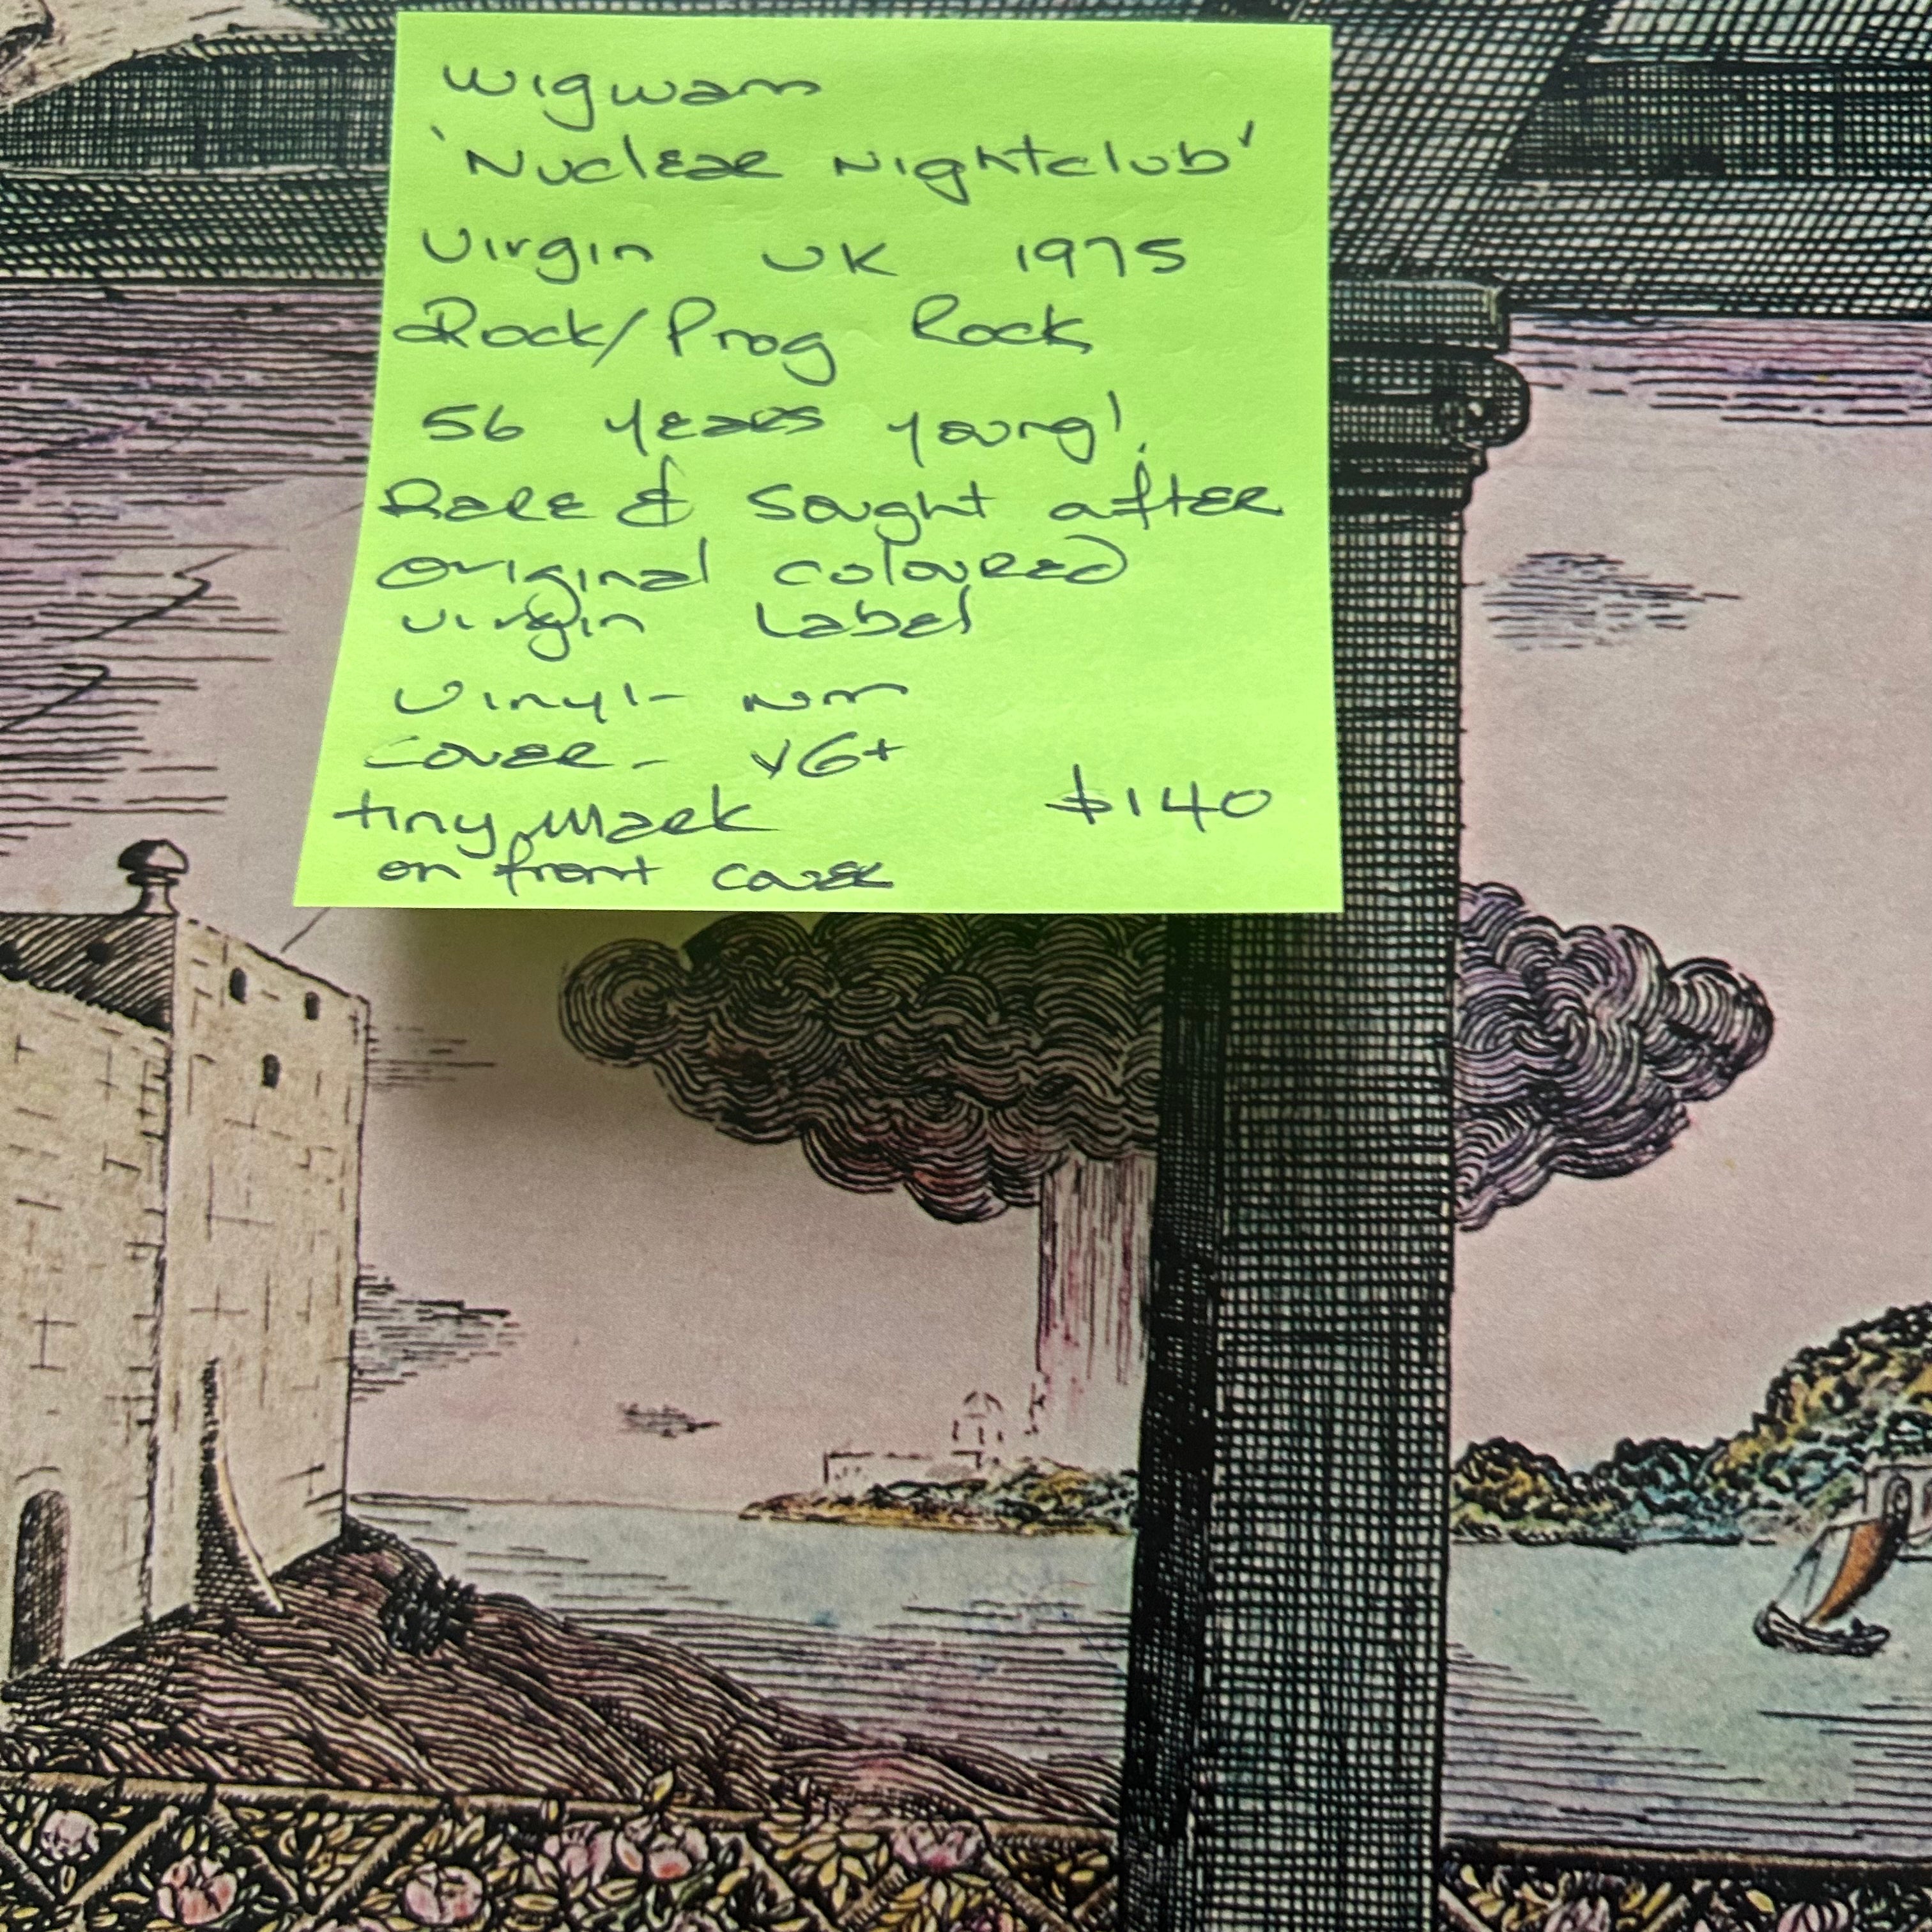 Wigwam
'Nuclear Nightclub'
Virgin UK 1975
Rock/Prog Rock
56 years young!
Rare & Sought after
original coloured
Virgin Label
Vinyl - NM
Cover - VG+
tiny mark
on front cover
$140